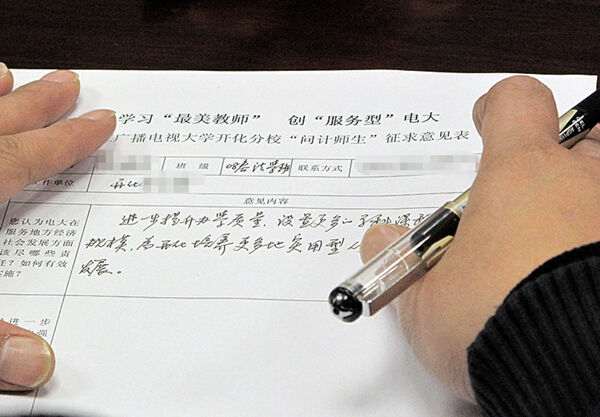 学习“最美教师” 创“服务型”电大
广播电视大学开化分校“问计师生”征求意见表
班 级 08春法学班 联系方式
作单位 开化
意见内容
您认为电大在
服务地方经济
社会发展方面
该尽哪些责
任？如何有效
实施？
进一步提升办学质量，设置更多
规模，为开化培养更多地实用型人
发展。
进一步
强